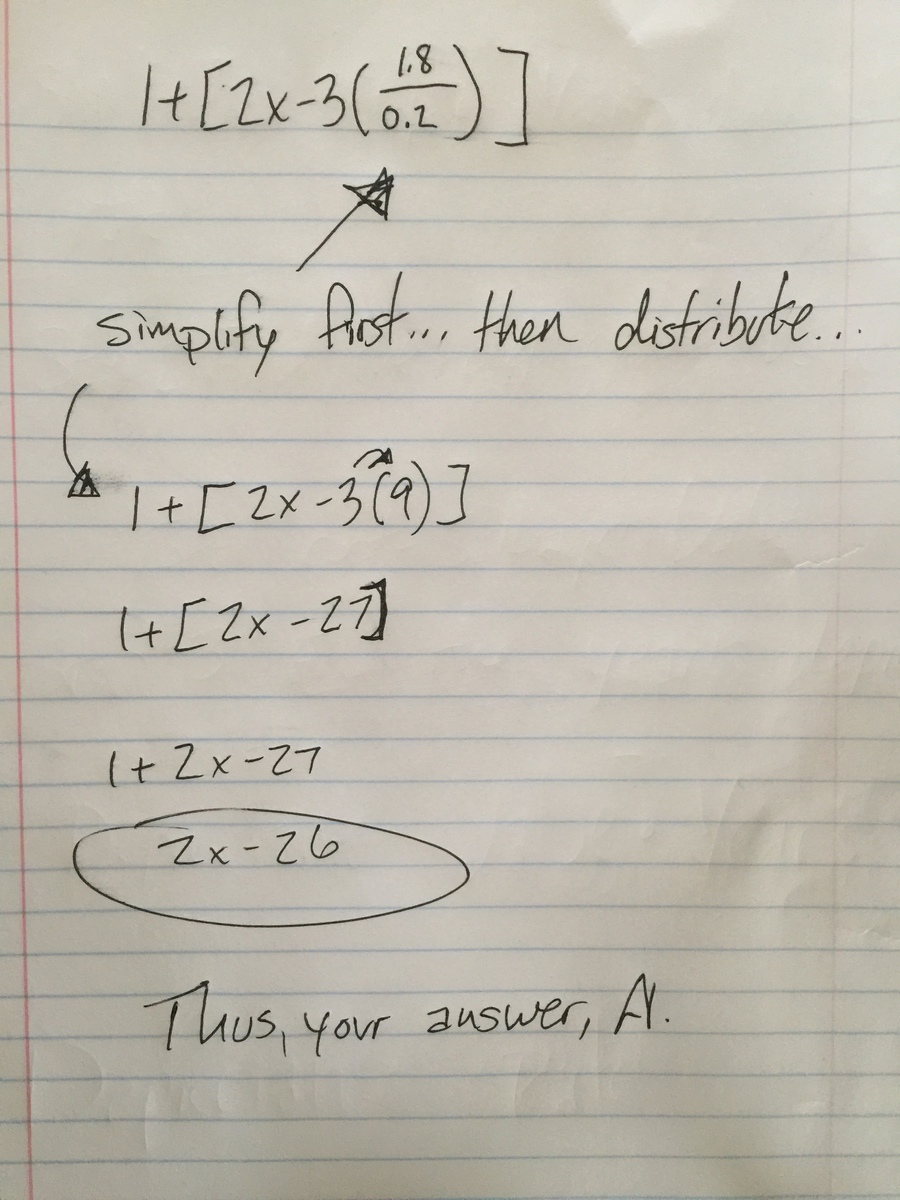 1+[2x-3(1.8/0.2)]
simplify first... then distribute...
1+[2x-3(9)]
1+[2x-27]
1+2x-27
2x-26
Thus, your answer, A.